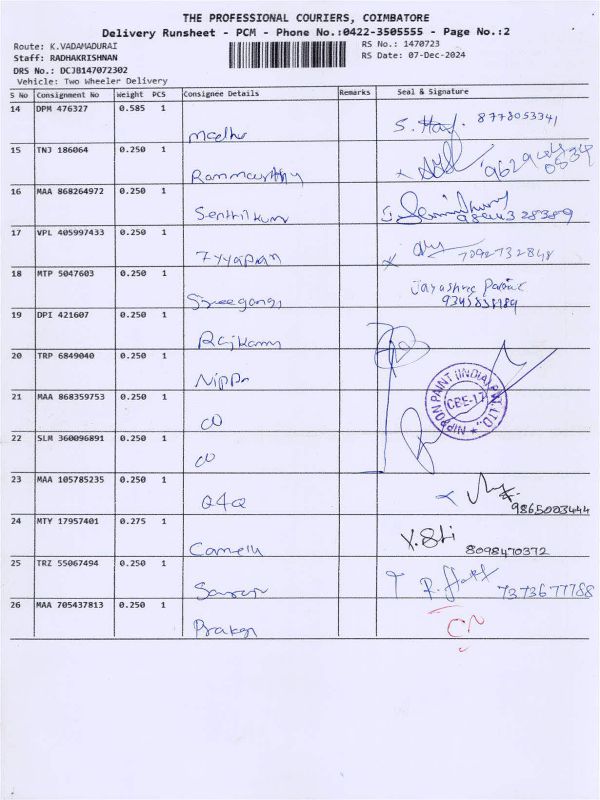 THE PROFESSIONAL COURIERS, COIMBATORE
Delivery Runsheet - PCM - Phone No.:0422-3505555 - Page No.:2
Route: K.VADAMADURAI RS No.: 1470723
Staff: RADHAKRISHNAN RS Date: 07-Dec-2024
DRS No.: DCJB147072302
Vehicle: Two Wheeler Delivery
S No Consignment No Weight PCS Consignee Details Remarks Seal & Signature
14 DPM 476327 0.585 1
Madhu S. 8778053341
15 TNJ 186064 0.250 1
Rammoorthy
16 MAA 868264972 0.250 1
Senthilkum
17 VPL 405997433 0.250 1
Iyyapan 7092732848
18 MTP 5047603 0.250 1
Sreegangi Jayashree
19 DPI 421607 0.250 1
Rajkam
20 TRP 6849040 0.250 1
Nippn
NIPPON PAINT (INDIA) PVT. LTD.,
CBE-17
21 MAA 868359753 0.250 1
22 SLM 360096891 0.250 1
23 MAA 105785235 0.250 1
Q4Q 9865003444
24 MTY 17957401 0.275 1
8098470372
25 TRZ 55067494 0.250 1
7373677788
26 MAA 705437813 0.250 1